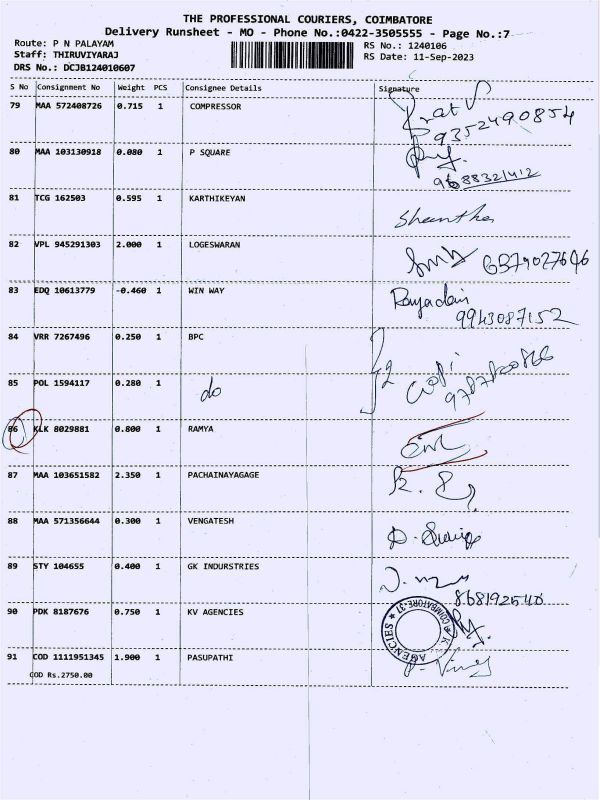 THE PROFESSIONAL COURIERS, COIMBATORE
Delivery Runsheet - MO - Phone No.:0422-3505555 - Page No.:7
Route: P N PALAYAM
Staff: THIRUVIYARAJ
DRS No.: DCJB124010607
RS No.: 1240106
RS Date: 11-Sep-2023
S No Consignment No Weight PCS Consignee Details Signature
79 MAA 572408726 0.715 1 COMPRESSOR
9352490854
80 MAA 103130918 0.080 1 P SQUARE
81 TCG 162503 0.595 1 KARTHIKEYAN
82 VPL 945291303 2.000 1 LOGESWARAN
83 EDQ 10613779 -0.460 1 WIN WAY
9943087152
84 VRR 7267496 0.250 1 BPC
85 POL 1594117 0.280 1 do Gopi
86 KLK 8029881 0.800 1 RAMYA
87 MAA 103651582 2.350 1 PACHAINAYAGAGE
88 MAA 571356644 0.300 1 VENGATESH
89 STY 104655 0.400 1 GK INDURSTRIES
868192540
90 PDK 8187676 0.750 1 KV AGENCIES
AGENCIES ★ COIMBATORE-37
91 COD 1111951345 1.900 1 PASUPATHI
COD Rs.2750.00